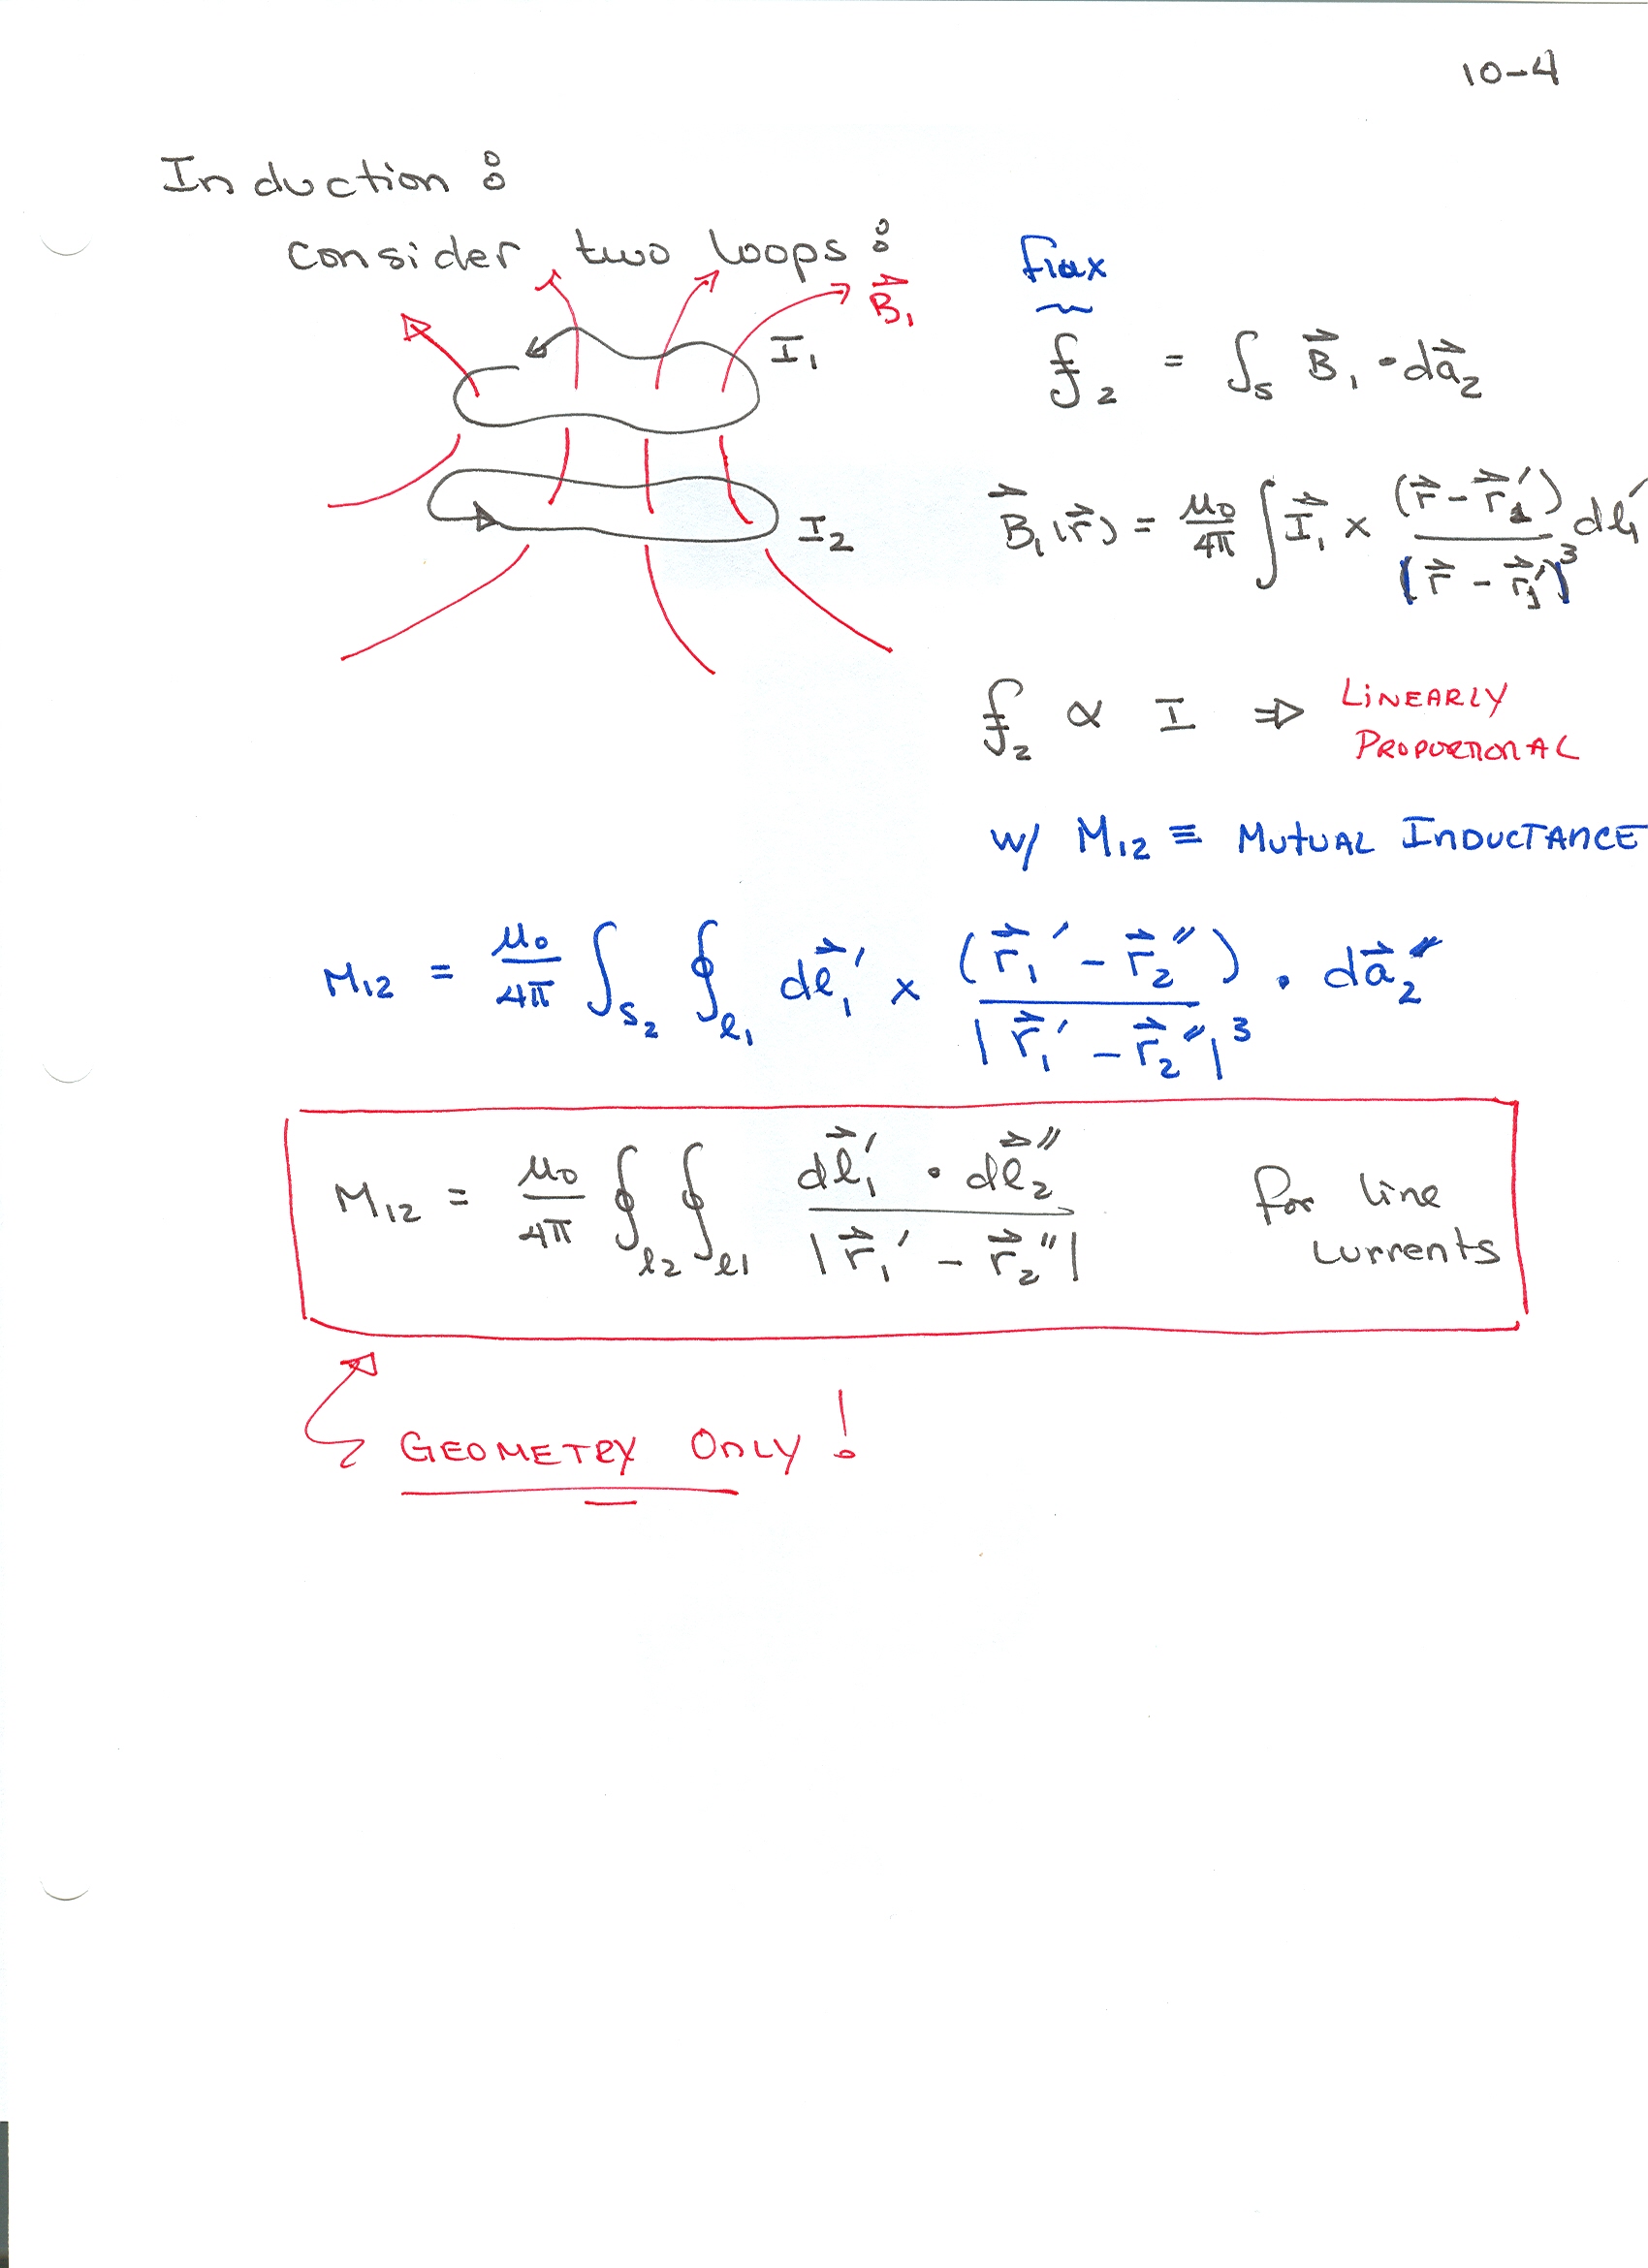 10-4
Induction :
consider two loops :
B⃗₁
I₁
I₂
flux
f₂ = ∫ₛ B⃗₁ · da⃗₂
B⃗₁(r⃗) = μ₀/4π ∫ I⃗₁ × (r⃗ - r⃗₁′)/|r⃗ - r⃗₁′|³ dl₁′
f₂ ∝ I ⇒ LINEARLY
PROPORTIONAL
w/ M₁₂ ≡ MUTUAL INDUCTANCE
M₁₂ = μ₀/4π ∫_S₂ ∮_ℓ₁ dℓ⃗₁′ × (r⃗₁′ - r⃗₂″)/|r⃗₁′ - r⃗₂″|³ · da⃗₂″
M₁₂ = μ₀/4π ∮_ℓ₂ ∮_ℓ₁ dℓ⃗₁′ · dℓ⃗₂″/|r⃗₁′ - r⃗₂″| for line
currents
GEOMETRY ONLY!